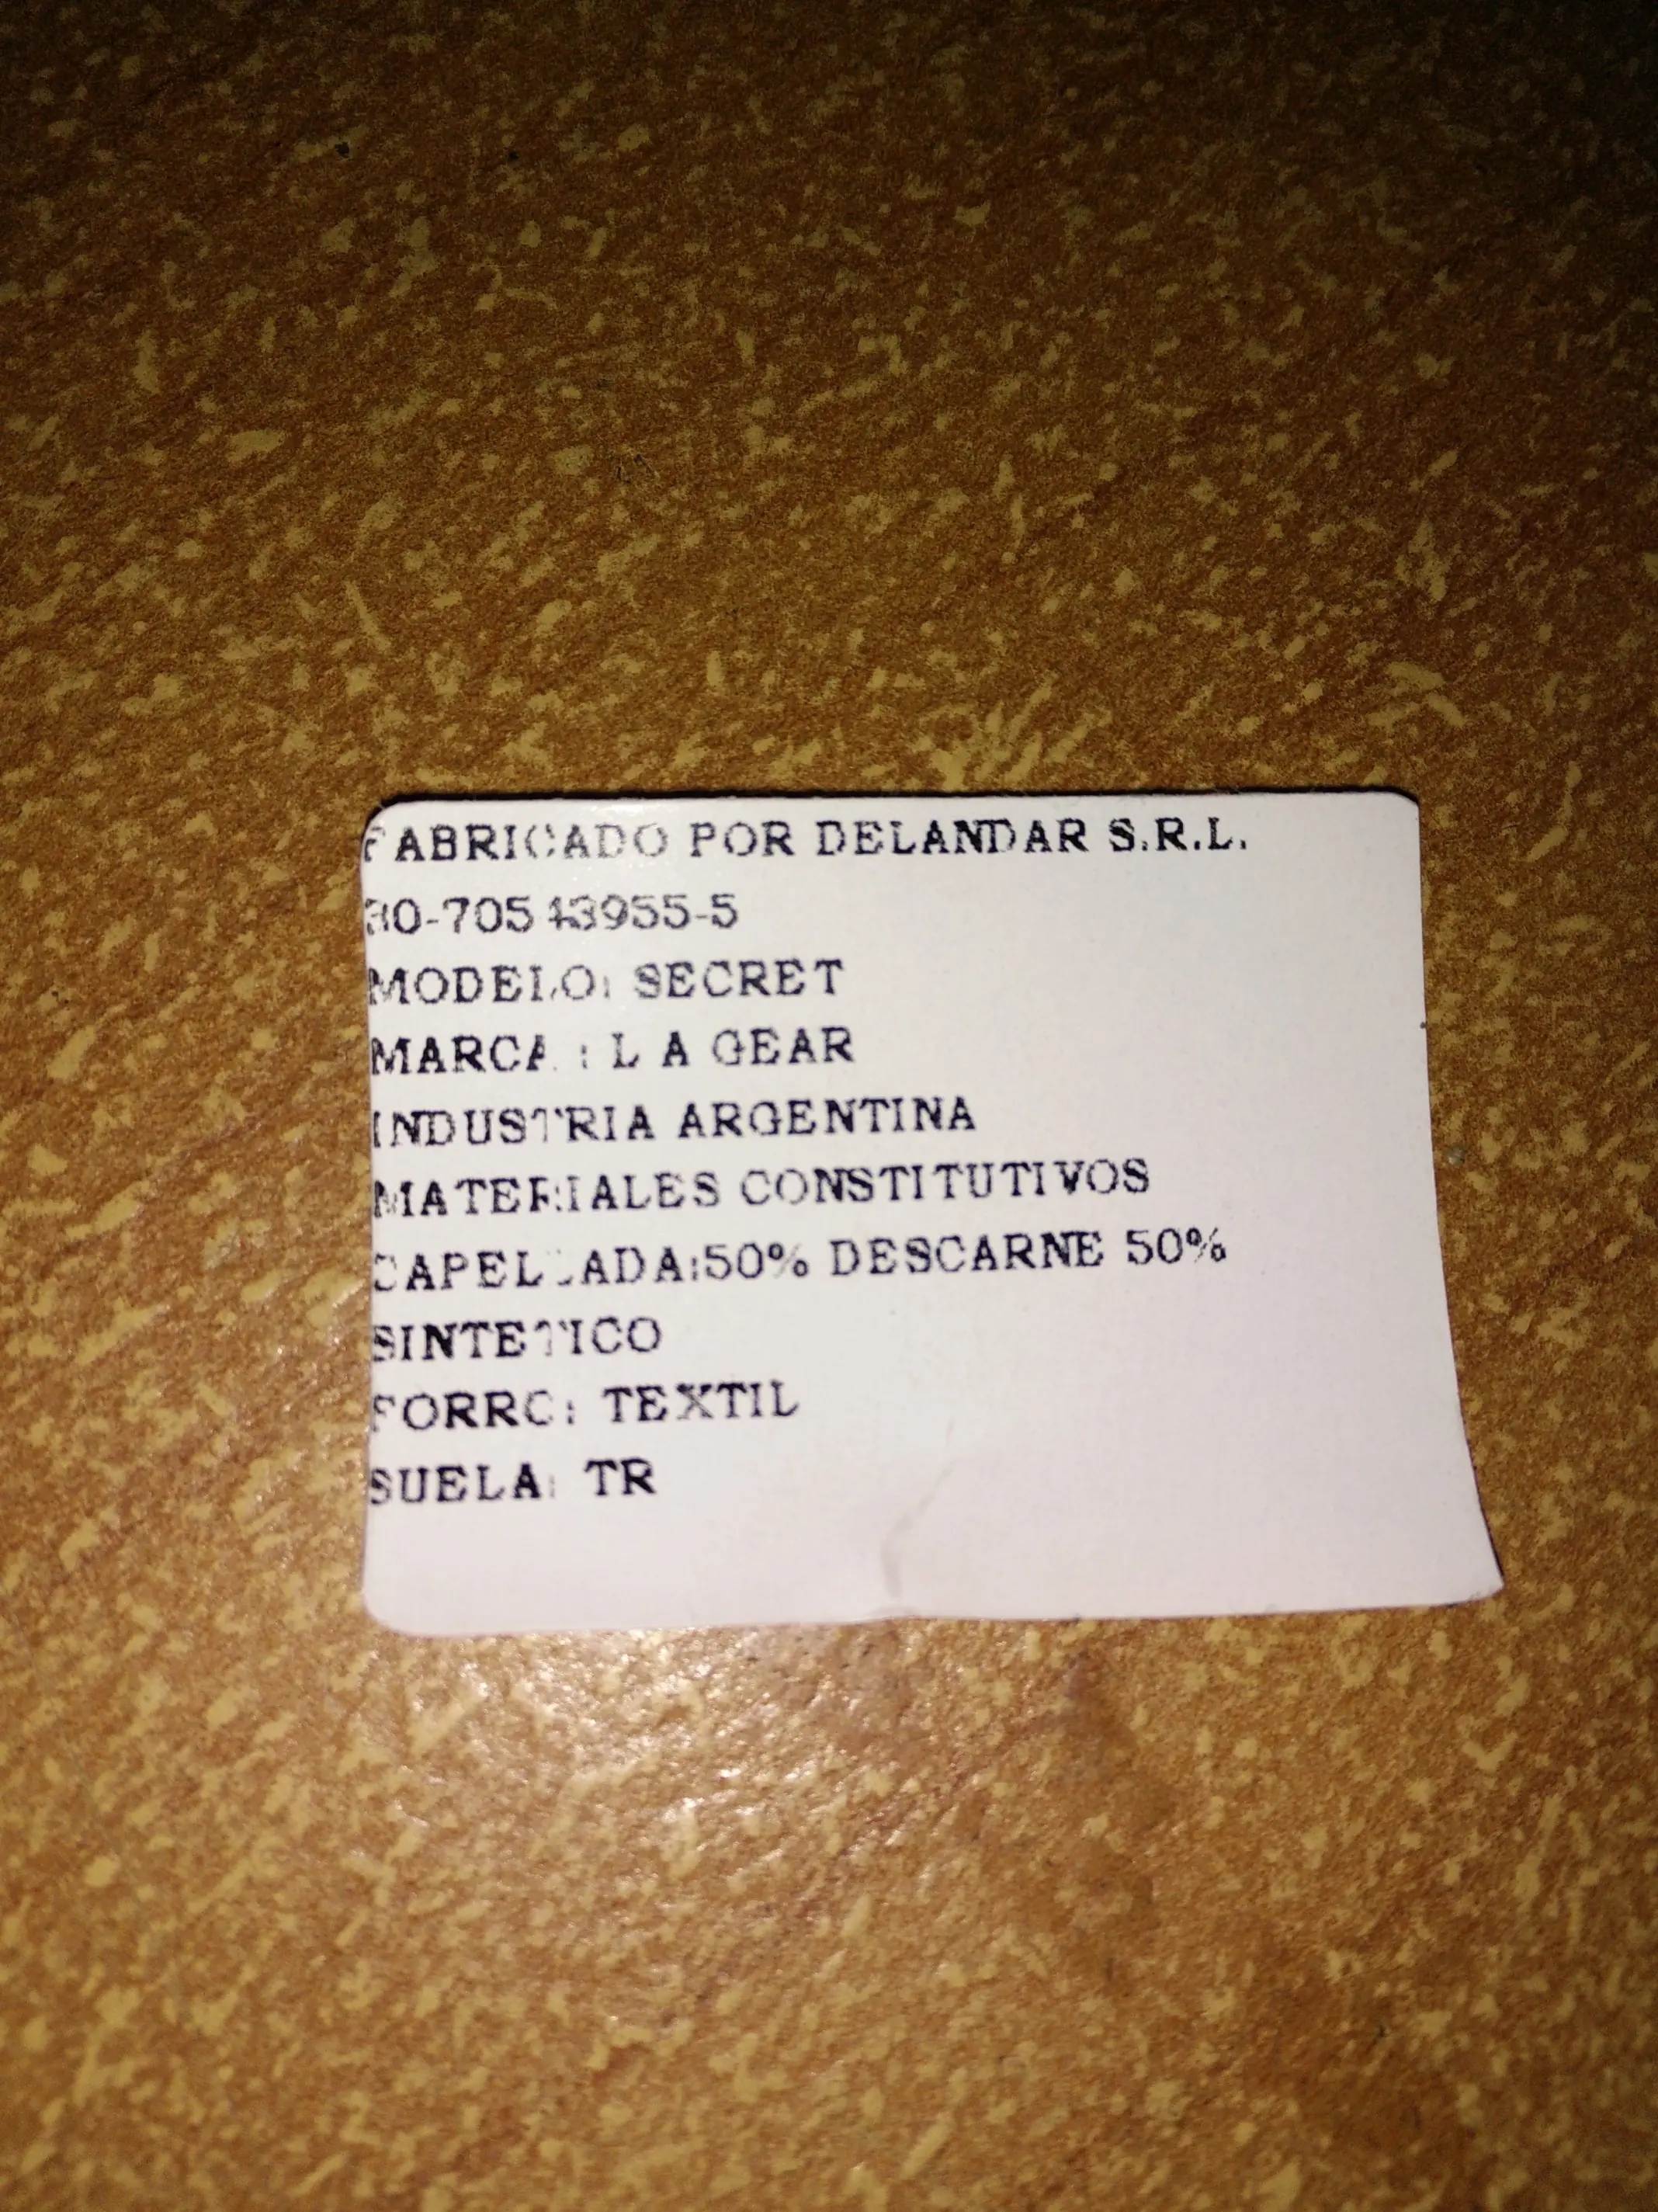 FABRICADO POR DELANDAR S.R.L.
30-70543955-5
MODELO: SECRET
MARCA : L A GEAR
INDUSTRIA ARGENTINA
MATERIALES CONSTITUTIVOS
CAPELLADA:50% DESCARNE 50%
SINTETICO
FORRO: TEXTIL
SUELA: TR